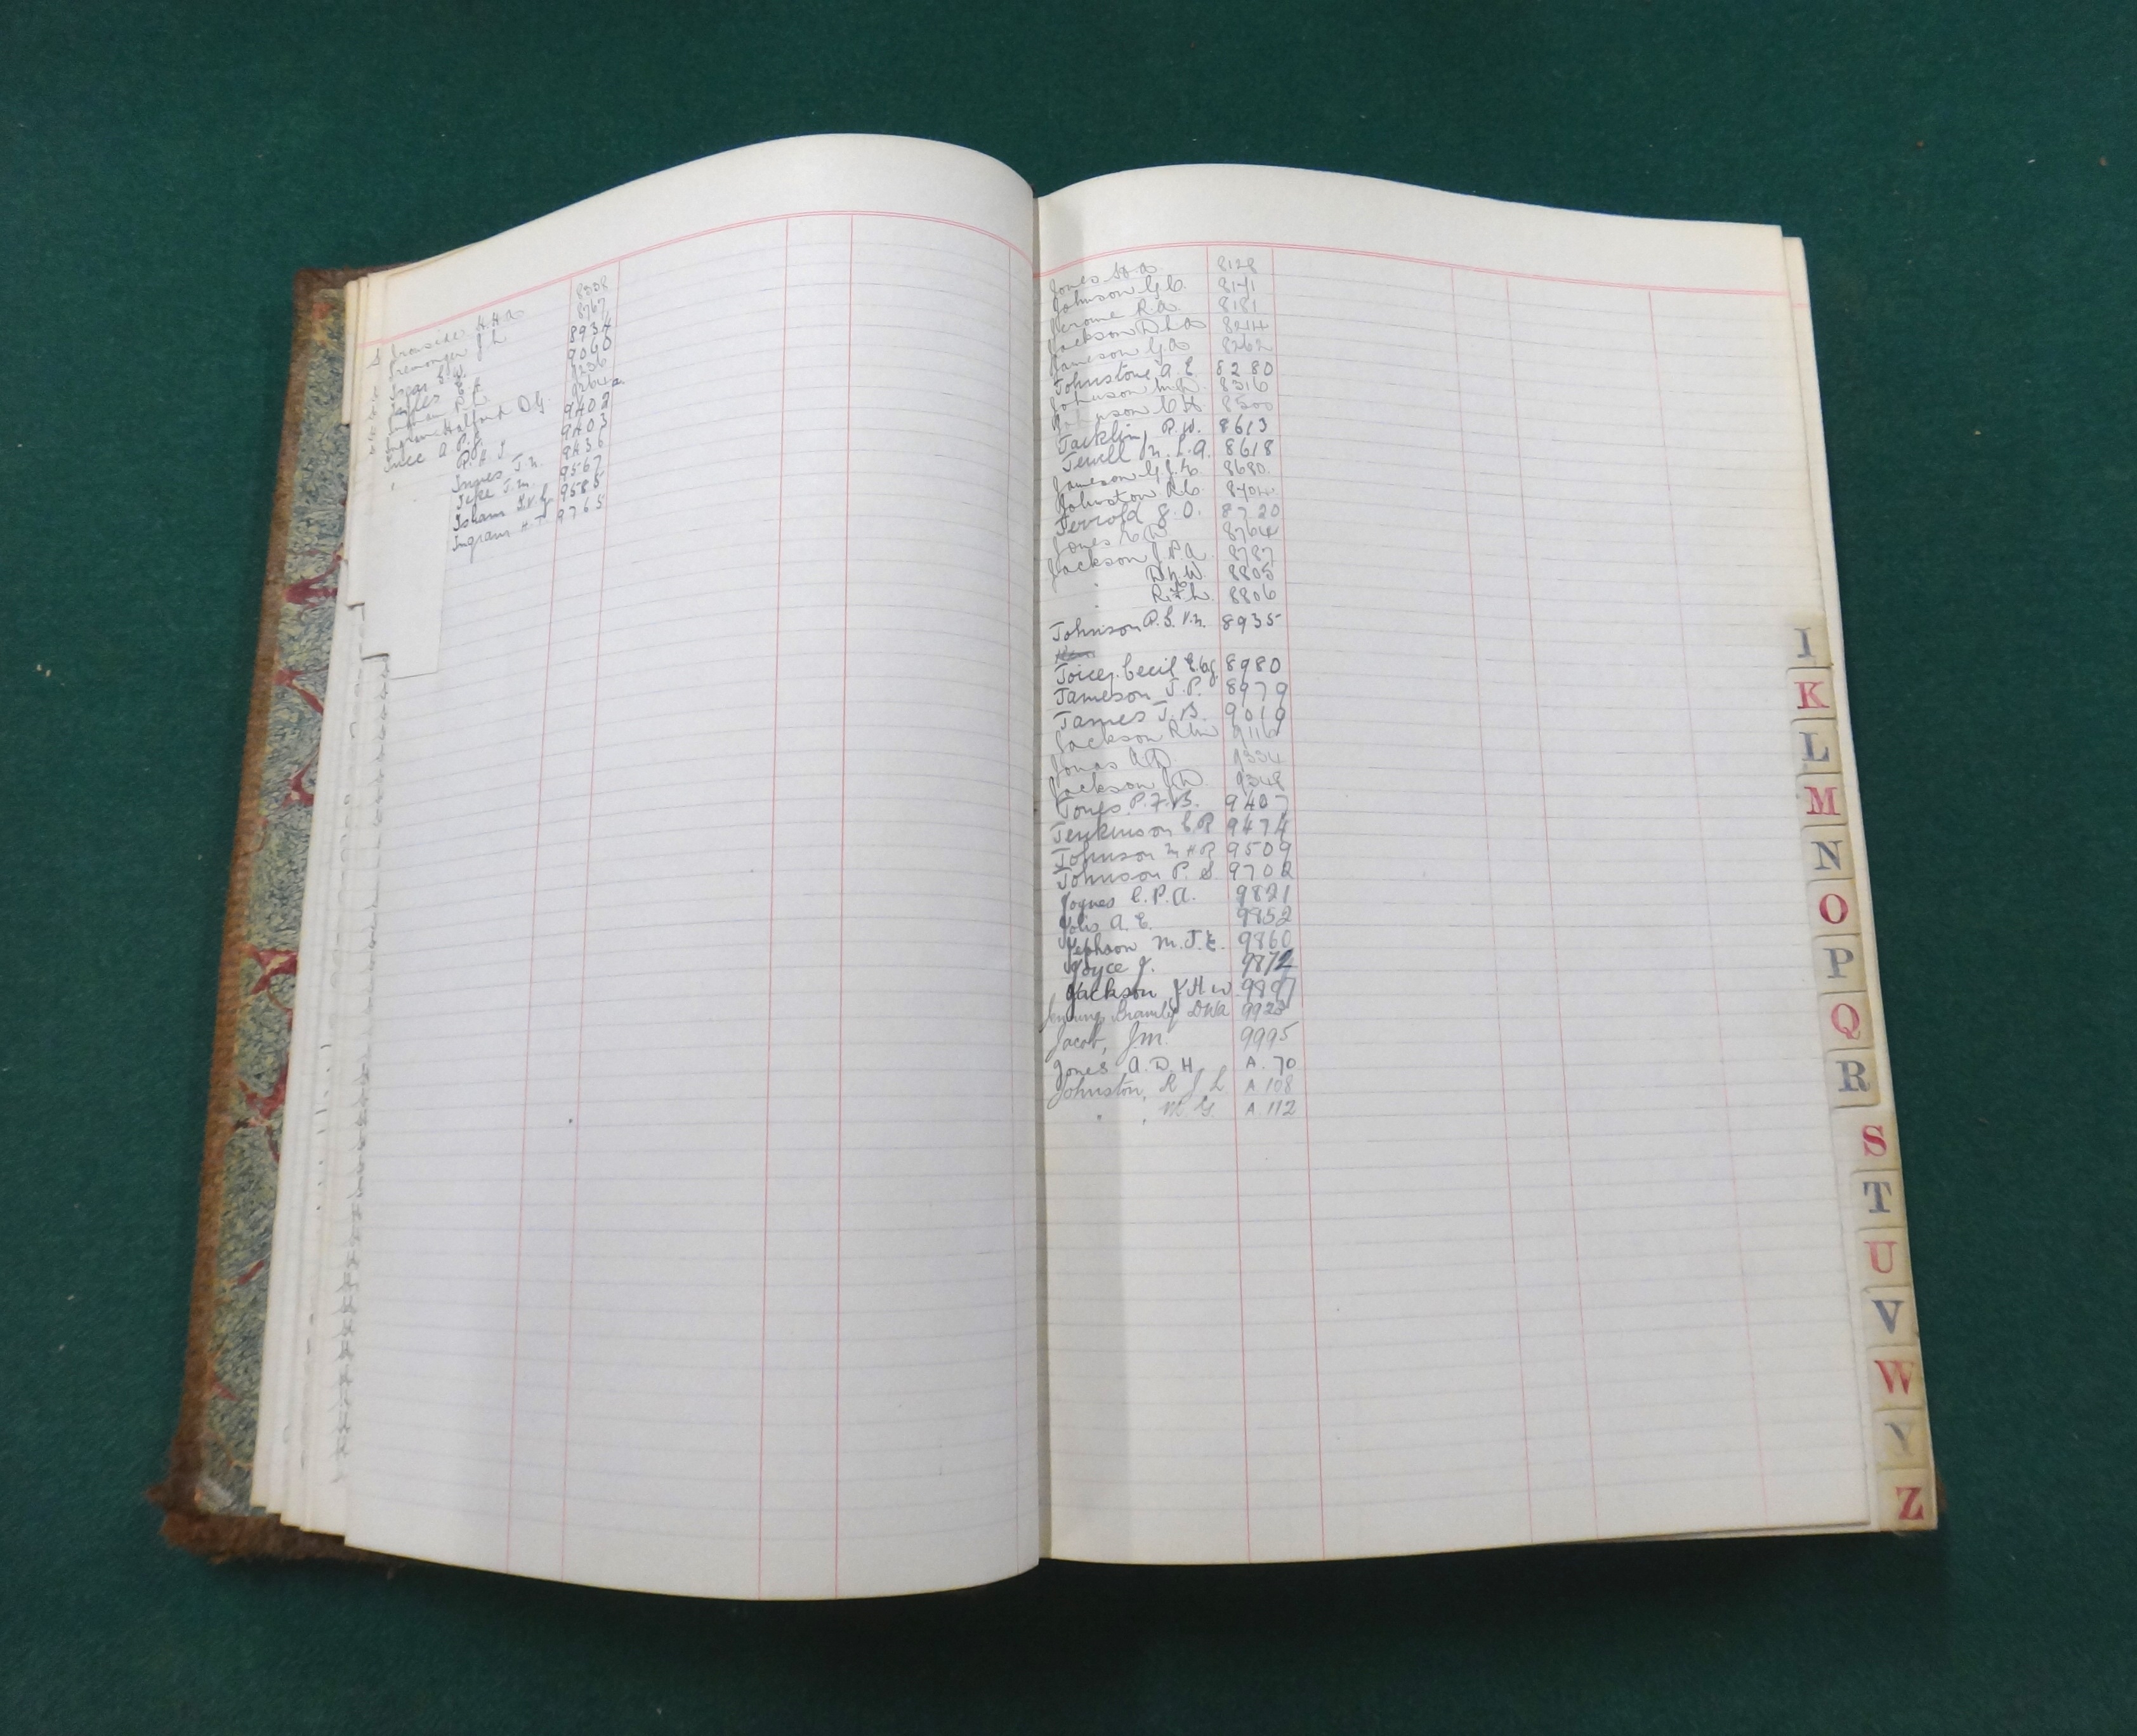 Ironside H.H.A 8508
Iremonger J L 8767
8934
9060
9256
9264 a
Ingram Halford D G. 9402
Ince A. P. J. 9403
" R. H. J. 9436
Innes J. N. 9567
Isham G.V.G 9585
Ingram H. T. 9765
Jones H.A. 8128
Johnson G.C. 8141
Jerome R.A. 8181
Jackson D.L.A 8244
Jameson G.A 8262
Johnstone A. E. 8280
Johnson M.D. 8316
8500
Jackling R.W. 8613
Jewell M. L.A. 8618
Jameson G.J.G. 8680.
Johnston R.C. 8704
Jerrold J. O. 8720
Jones C D 8764
Jackson J.P.A. 8787
" D.N.W. 8805
" R.F.L. 8806
Johnson P.S. V.N. 8935
Joicey Cecil 8980
Jameson J.P. 8979
James J. B. 9019
Jackson 9116
Jonas A.D. 9334
Jackson J D. 9348
Jones. P. F. B. 9407
Jenkinson C.P 9474
Johnson M H P 9509
Johnson P. S. 9702
Joynes C.P.A. 9821
Jolis A. E. 9852
Jephson M. J. E. 9860
Joyce J. 9872
Jackson J H W. 9897
Bramly DWA 9923
Jacob, J.M. 9995
Jones A. D. H. A. 70
Johnston, R J L A. 108
" , M. G. A. 112
I
K
L
M
N
O
P
Q
R
S
T
U
V
W
Y
Z